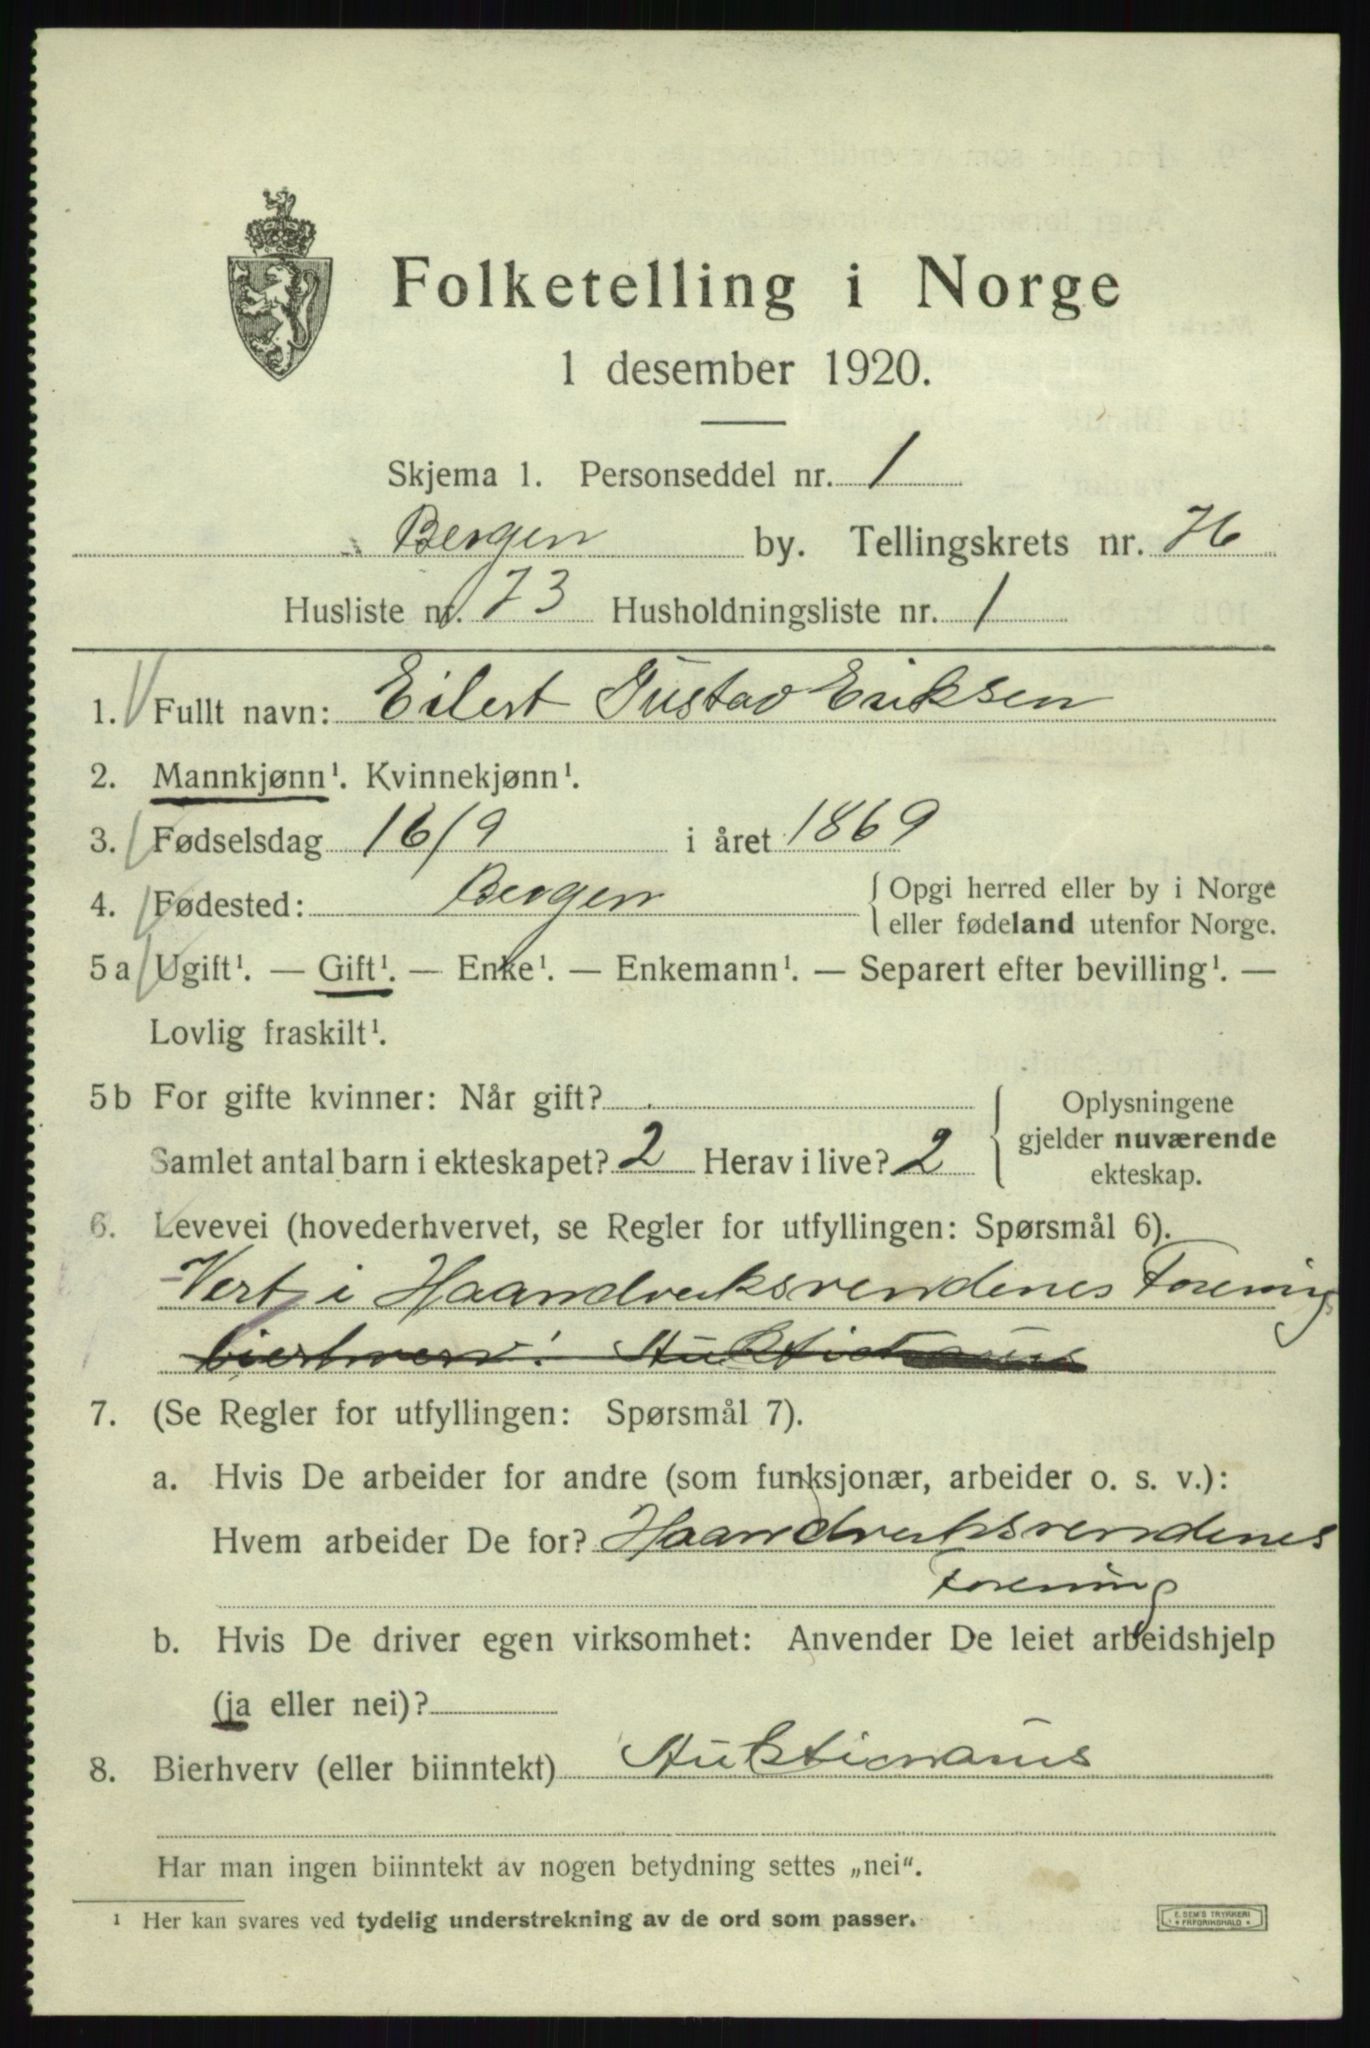 Folketelling i Norge
1 desember 1920.
Skjema 1. Personseddel nr. 1
Bergen by. Tellingskrets nr. 76
Husliste nr. 73 Husholdningsliste nr. 1
1. Fullt navn: Eilert Gustav Eriksen
2. Mannkjønn¹. Kvinnekjønn¹.
3. Fødselsdag 16/9 i året 1869
4. Fødested: Bergen { Opgi herred eller by i Norge
eller fødeland utenfor Norge.
5 a Ugift¹. — Gift¹. — Enke¹. — Enkemann¹. — Separert efter bevilling¹. —
Lovlig fraskilt¹.
5 b For gifte kvinner: Når gift?
Samlet antal barn i ekteskapet? 2 Herav i live? 2
{ Oplysningene
gjelder nuværende
ekteskap.
6. Levevei (hovederhvervet, se Regler for utfyllingen: Spørsmål 6).
Vert i Haandverksvendenes Forening
bierhverv: Auktionarius
7. (Se Regler for utfyllingen: Spørsmål 7).
a. Hvis De arbeider for andre (som funksjonær, arbeider o. s. v.):
Hvem arbeider De for? Haandverksvendenes
Forening
b. Hvis De driver egen virksomhet: Anvender De leiet arbeidshjelp
(ja eller nei)?
8. Bierhverv (eller biinntekt) Auktionarius
Har man ingen biinntekt av nogen betydning settes „nei“.
¹ Her kan svares ved tydelig understrekning av de ord som passer.
E. SEM'S TRYKKERI
FREDRIKSHALD